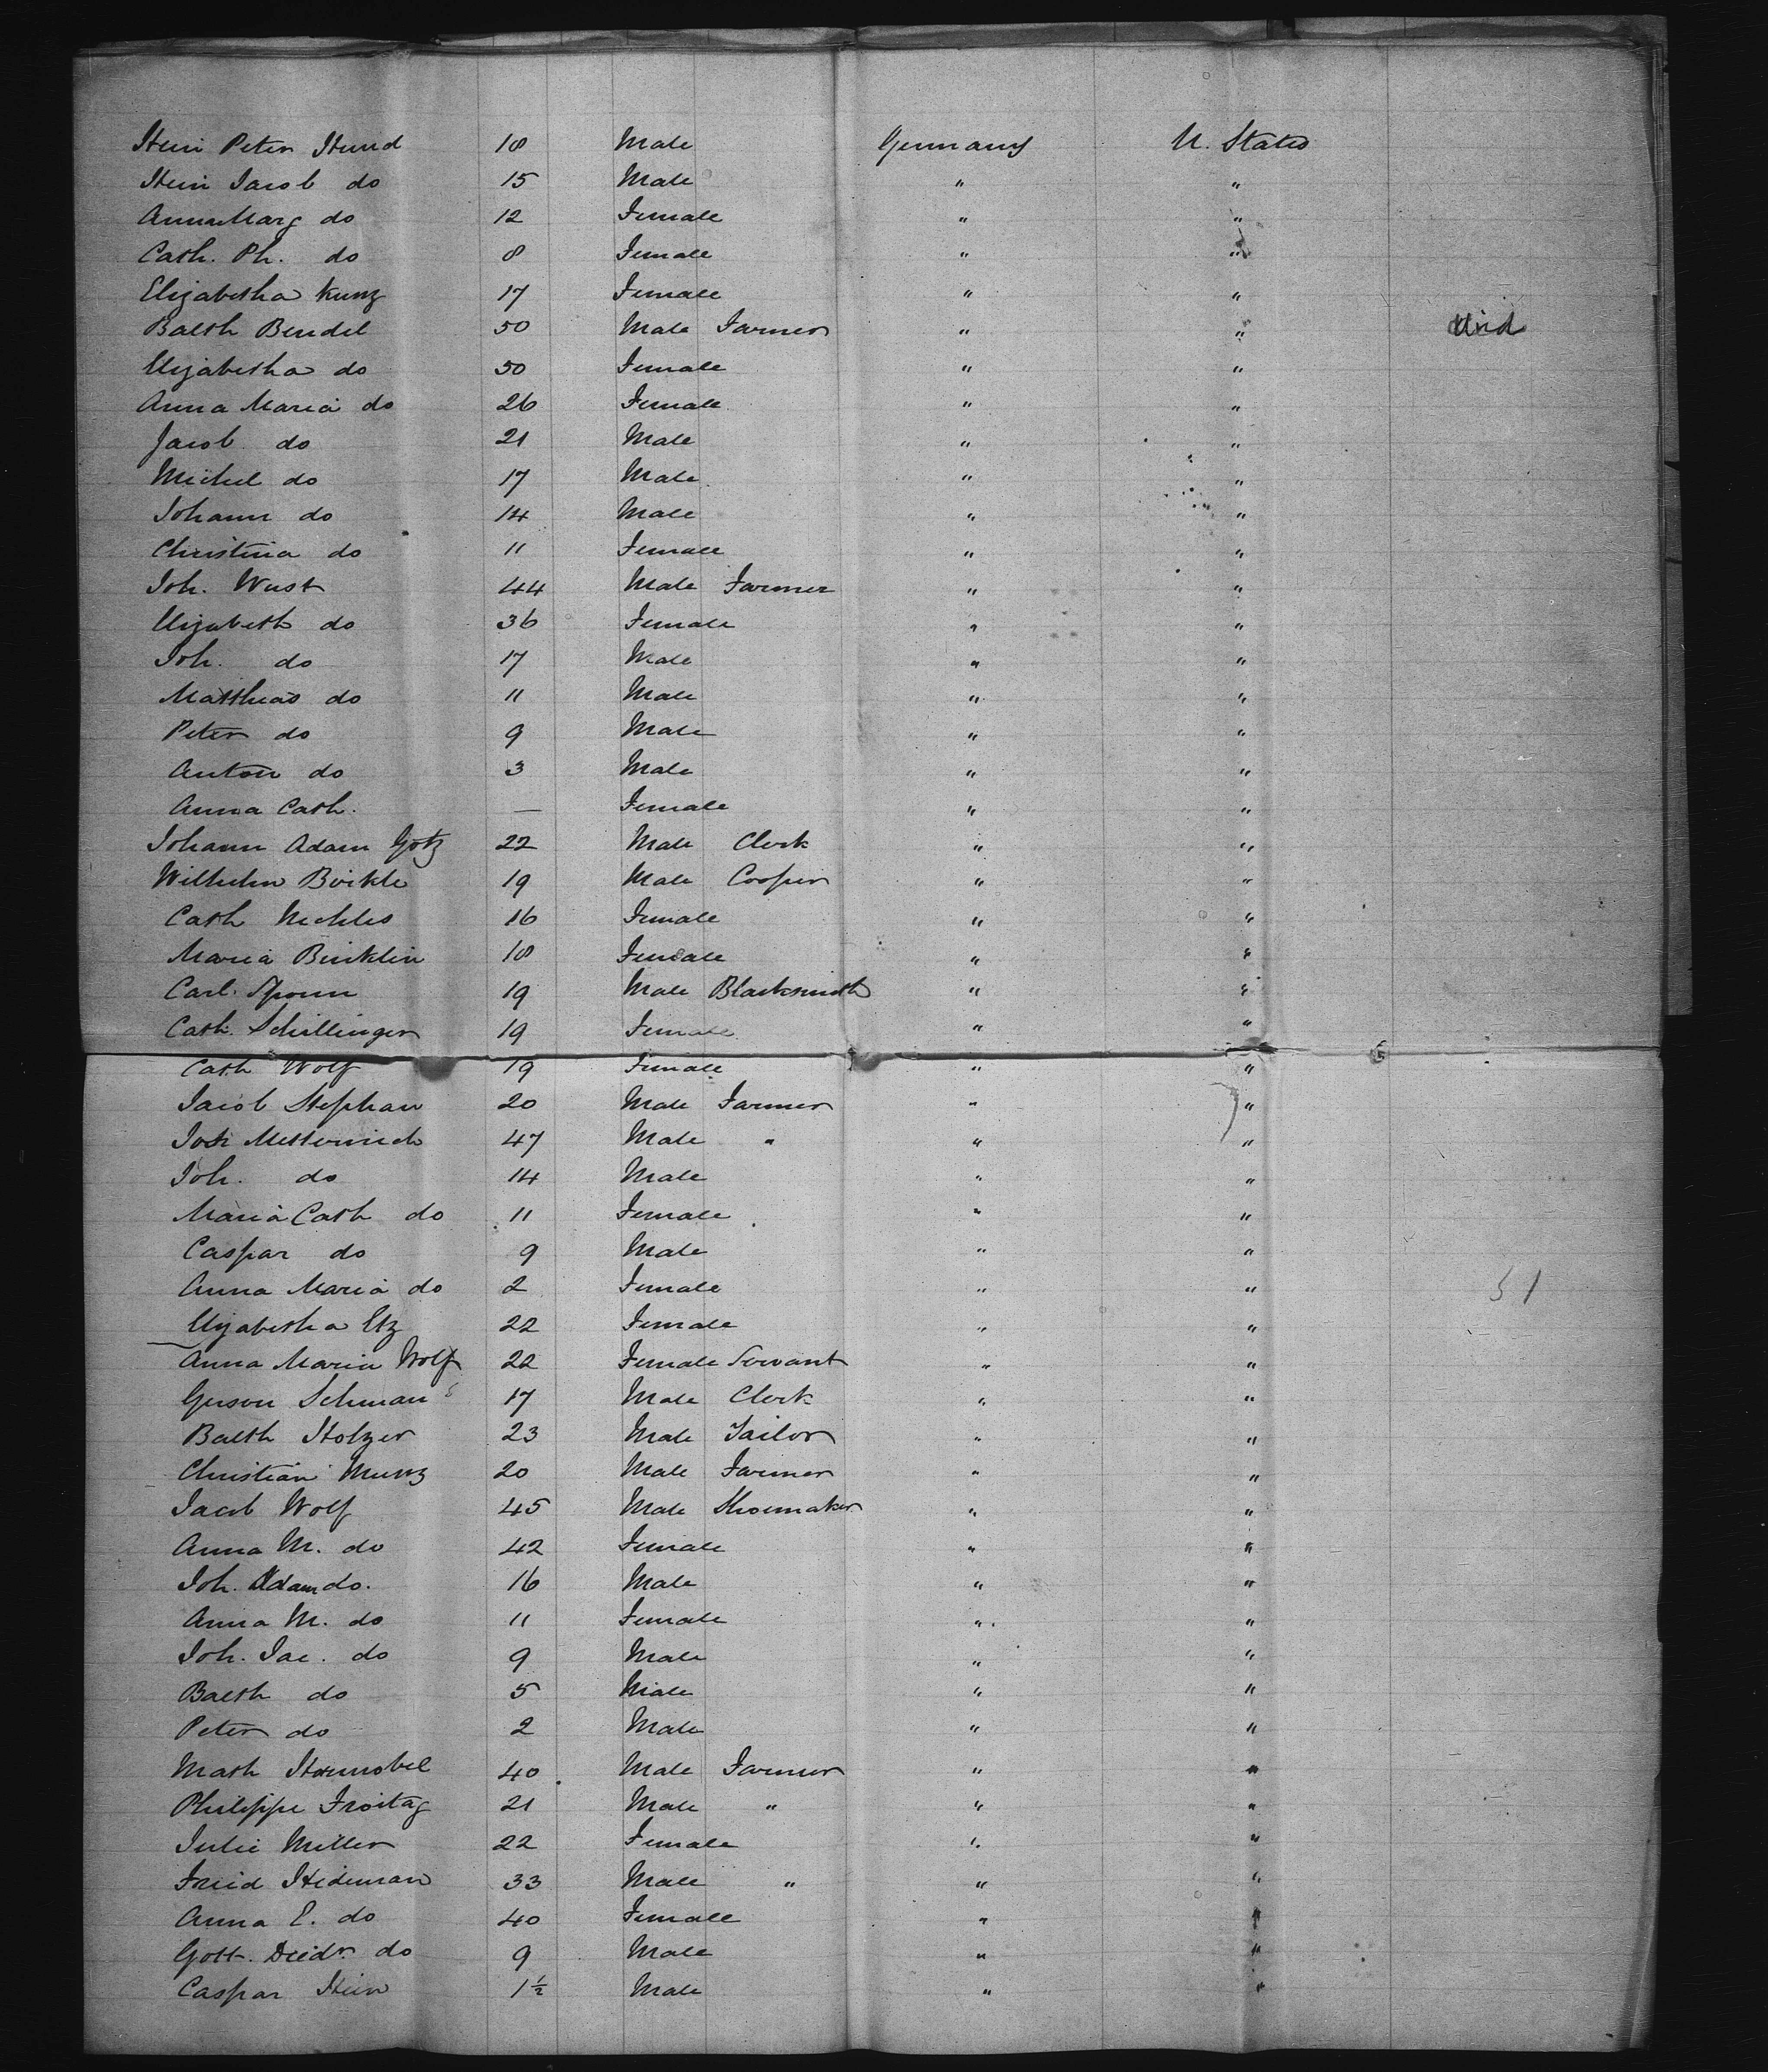 Hein Peter Hund 18 Male Germany U. States
Hein Jacob do 15 Male " "
Anna Marg do 12 Female " "
Cath. Ph. do 8 Female " "
Elizabetha Kunz 17 Female " "
Balth Bendel 50 Male Farmer " " died
Elizabetha do 50 Female " "
Anna Maria do 26 Female " "
Jacob do 21 Male " "
Michel do 17 Male " "
Johann do 14 Male " "
Christina do 11 Female " "
Joh. Wust 44 Male Farmer " "
Elizabeth do 36 Female " "
Joh. do 17 Male " "
Matthias do 11 Male " "
Peter do 9 Male " "
Anton do 3 Male " "
Anna Cath. — Female " "
Johann Adam Gotz 22 Male Clerk " "
Wilhelm Boikle 19 Male Cooper " "
Cath 16 Female " "
Maria Binklin 18 Female " "
Carl. Sponn 19 Male Blacksmith " "
Cath. Schillinger 19 Female " "
Cath Wolf 19 Female " "
Jacob Stephan 20 Male Farmer " "
Joh Metternich 47 Male " " "
Joh. do 14 Male " "
Maria Cath do 11 Female " "
Caspar do 9 Male " "
Anna Maria do 2 Female " " 51
Elizabetha Etz 22 Female " "
Anna Maria Wolf 22 Female Servant " "
Gerson Schuman 17 Male Clerk " "
Balth Holzer 23 Male Tailor " "
Christian Munz 20 Male Farmer " "
Jacob Wolf 45 Male Shoemaker " "
Anna M. do 42 Female " "
Joh. Adam do. 16 Male " "
Anna M. do 11 Female " "
Joh. Jac. do 9 Male " "
Balth do 5 Male " "
Peter do 2 Male " "
Math 40 Male Farmer " "
Philippe Froitag 21 Male " " "
Julie Miller 22 Female " "
Fried Hideman 33 Male " " "
Anna E. do 40 Female " "
Gott. Diedr. do 9 Male " "
Caspar Hein 1½ Male " "